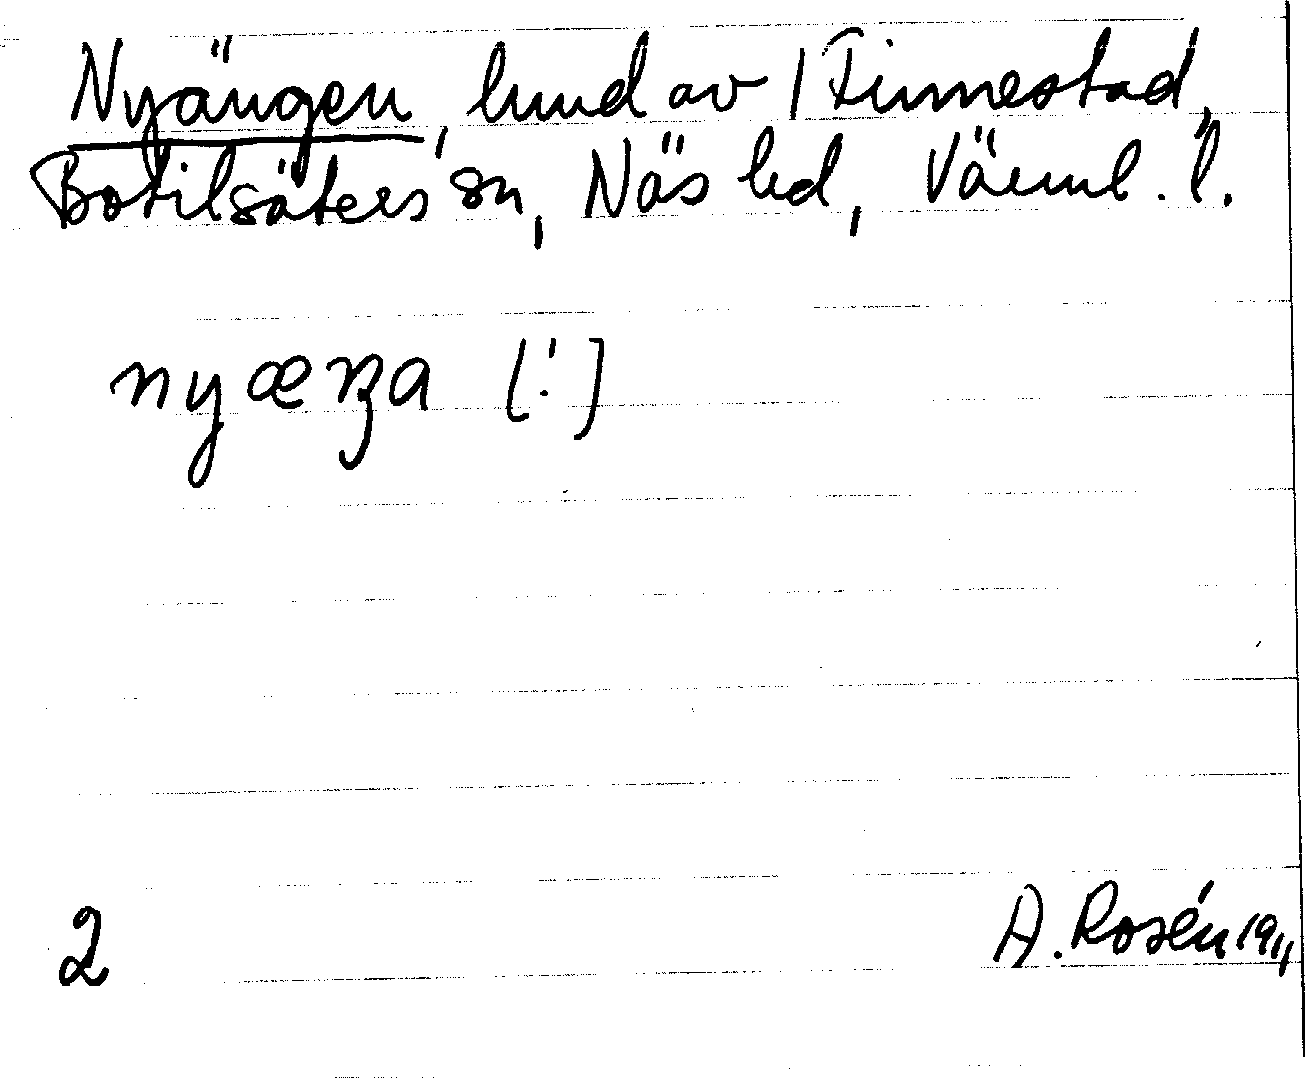 Nyängen, hmd av 1 Finnestad,
Botilsäters sn, Näs hd, Värml. l.
nyæŋa [:']
2
A. Rosén 1911